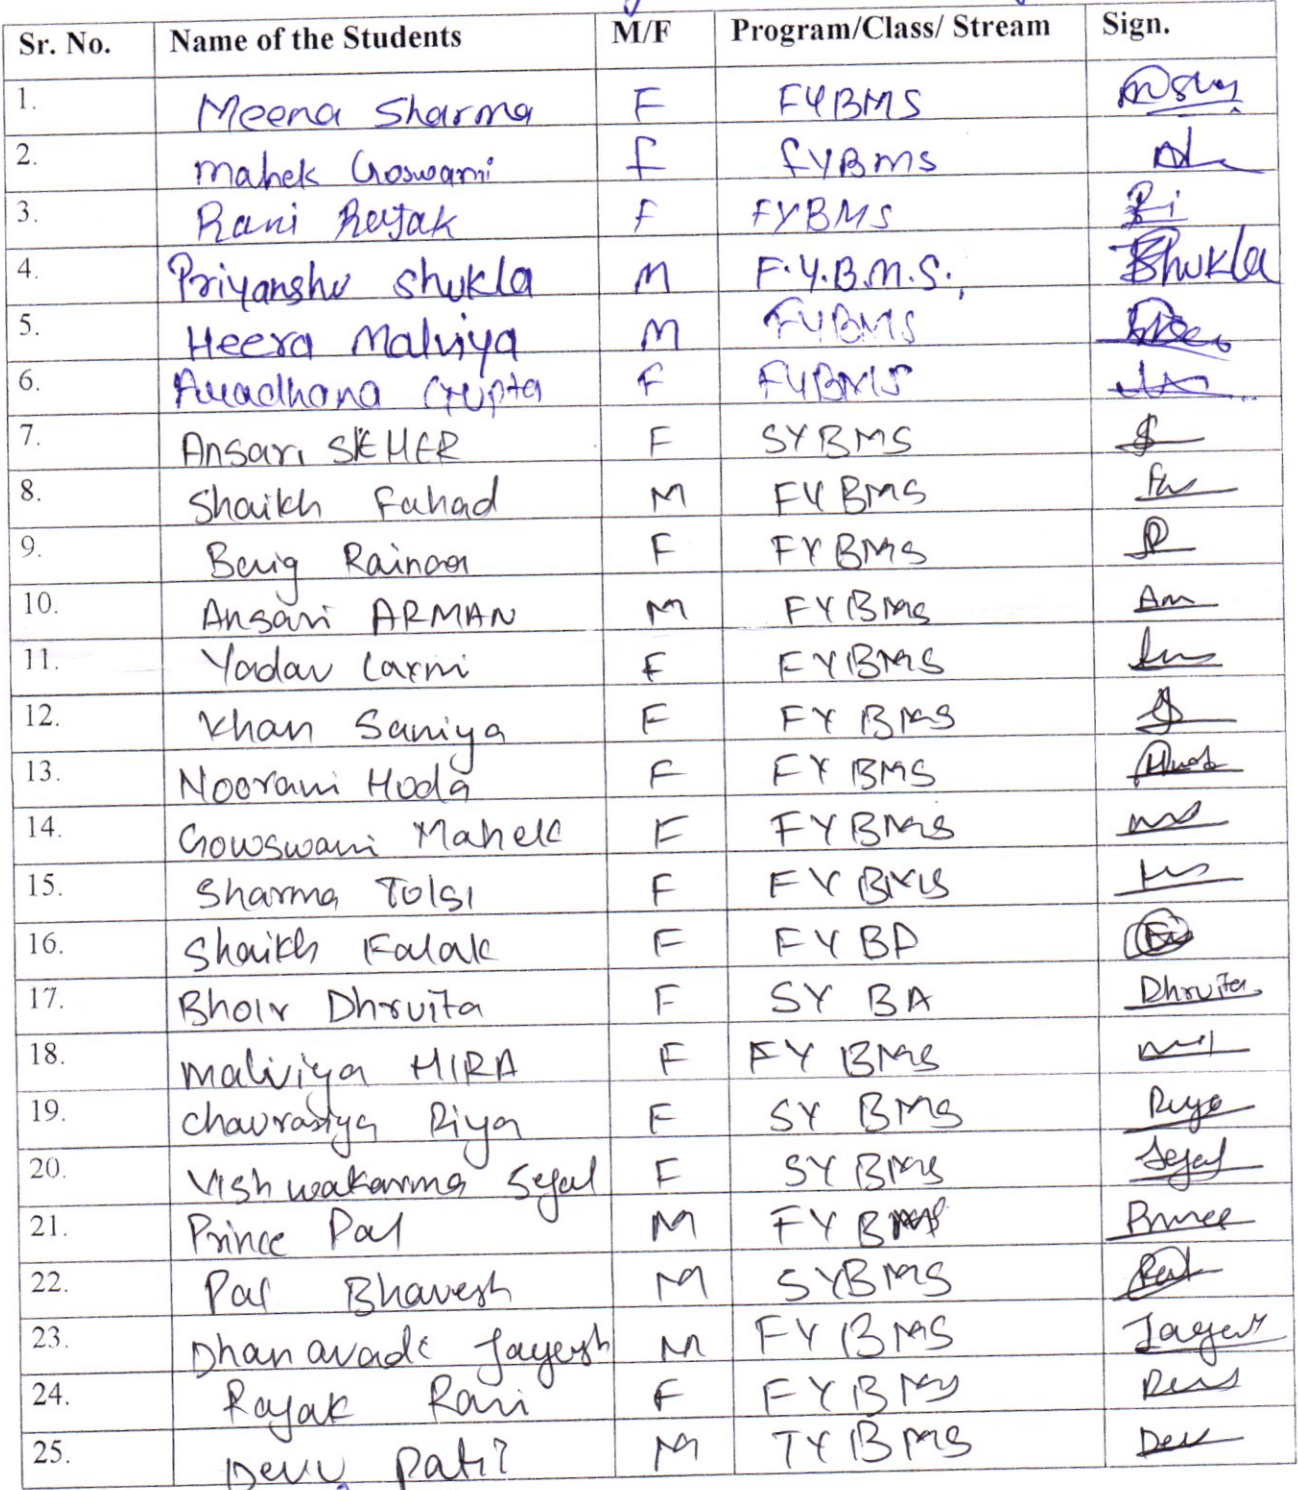 Sr. No. Name of the Students M/F Program/Class/ Stream Sign.
1. Meena Sharma F FYBMS
2. Mahek Goswami F FYBMS
3. Rani Rajak F FYBMS
4. Priyanshu Shukla M F.Y.B.M.S. Shukla
5. Heera Malviya M FYBMS
6. Gupta F FYBMS
7. Ansari SEHER F SYBMS
8. Shaikh Fahad M FYBMS
9. Baig F FYBMS
10. Ansari ARMAN M FYBMS Am
11. Yadav Laxmi F FYBMS
12. Khan Saniya F FY BMS
13. Noorani Hoda F FY BMS
14. Gowswami Mahek F FYBMS
15. Sharma Tolsi F FY BMS
16. Shaikh Falak F FY BP
17. Bhoir Dhruita F SY BA Dhruita
18. Malviya HIRA F FY BMS
19. Chaurasiya Riya F SY BMS Riya
20. Vishwakarma Sejal F SY BMS Sejal
21. Prince Pal M FY BMS Prince
22. Pal Bhavesh M SYBMS
23. Dhanavade Jayesh M FY BMS Jayesh
24. Rajak Rani F FYBMS
25. Patil M TYBMS Dev